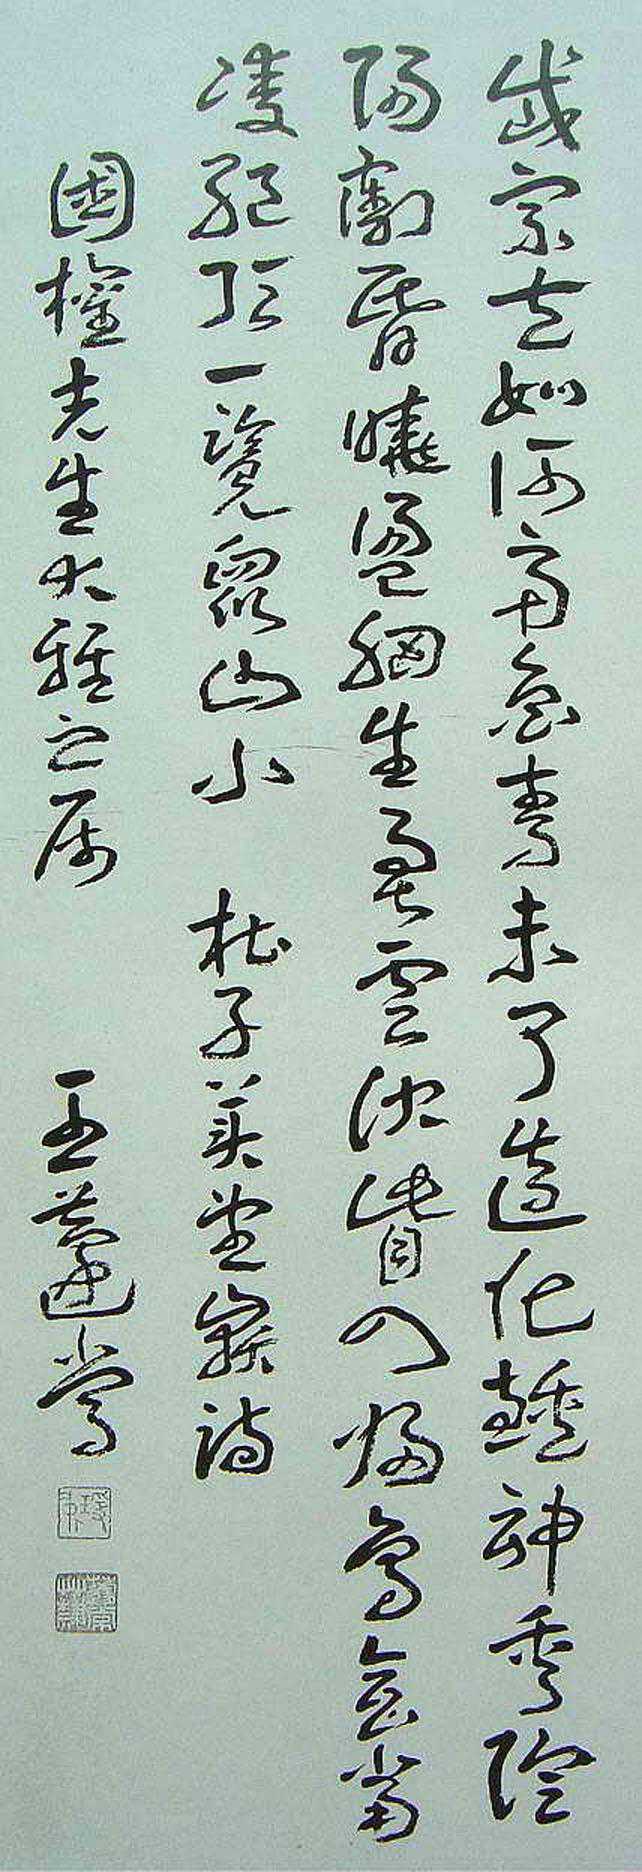 岱宗夫如何齊魯青未了造化鍾神秀陰
陽割昏曉盪胸生層雲決眥入歸鳥會當
凌絕頂一覽眾山小 杜子美望嶽詩
國權先生大雅之属 王蘧常